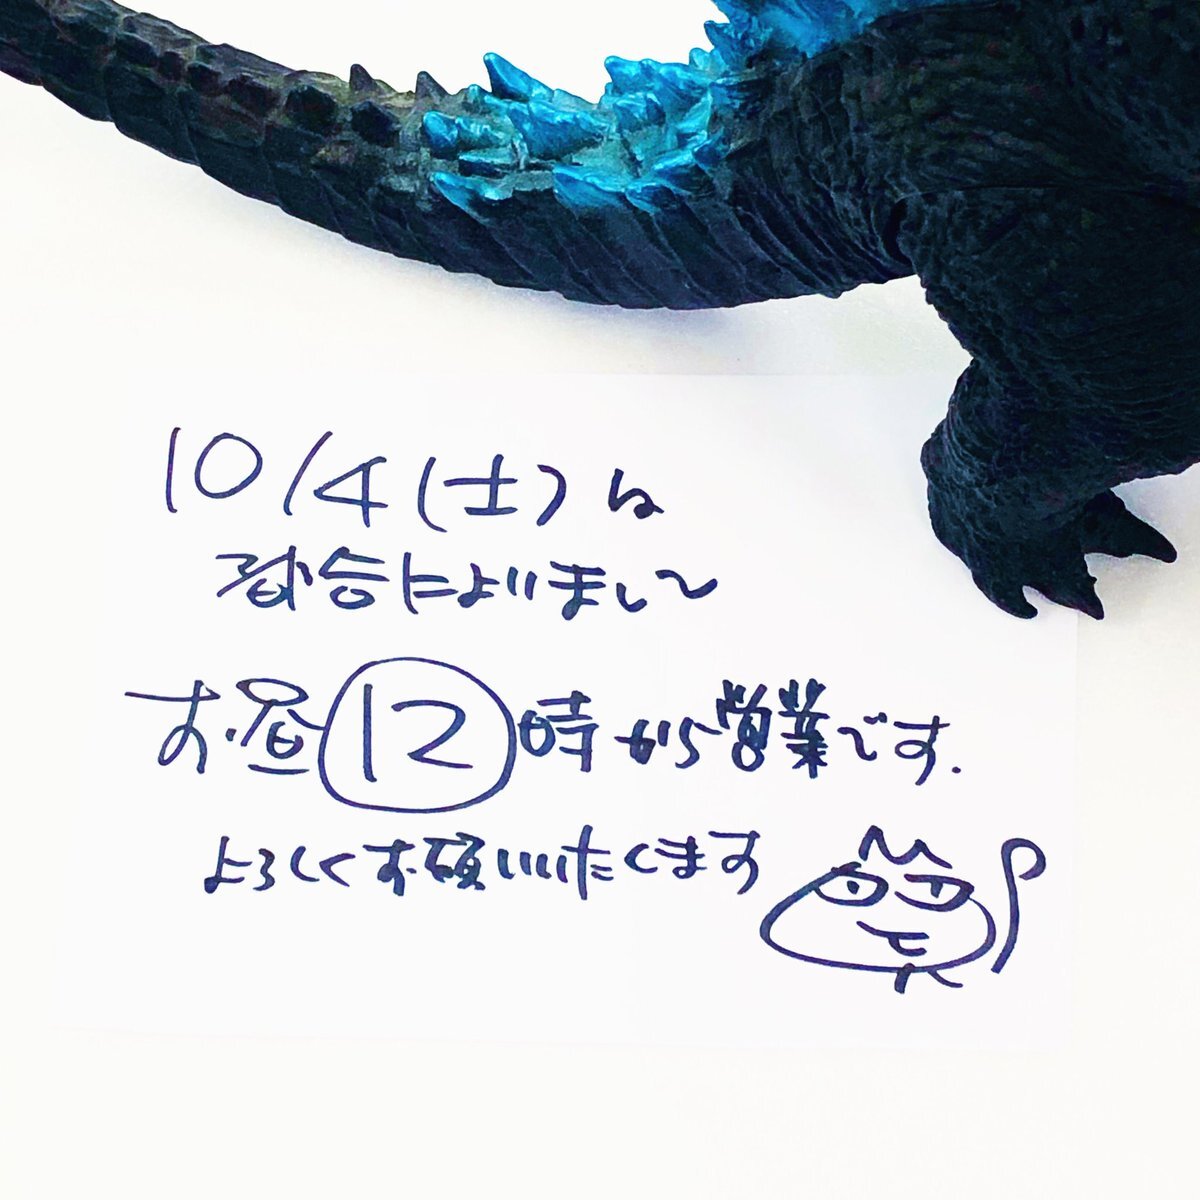 10/4(土)は
都合によりまして
お昼12時から営業です.
よろしくお願いいたします